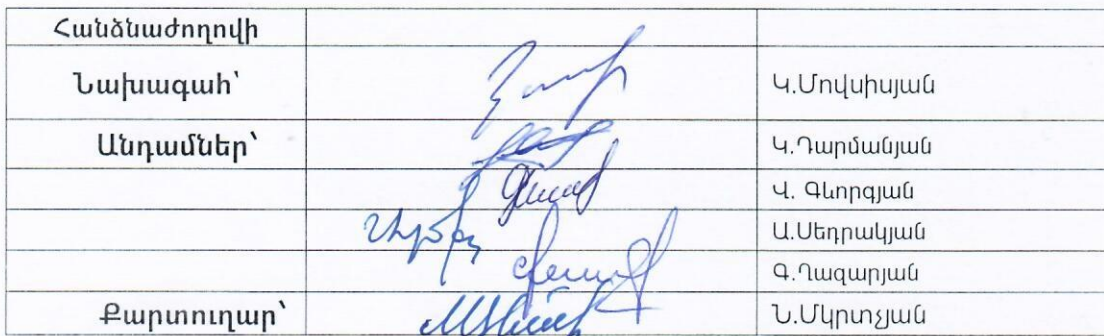 Հանձնաժողովի
Նախագահ՝ Կ.Մովսիսյան
Անդամներ՝ Կ.Դարմանյան
Վ. Գևորգյան
Ա.Սեդրակյան
Գ.Ղազարյան
Քարտուղար՝ Ն.Մկրտչյան